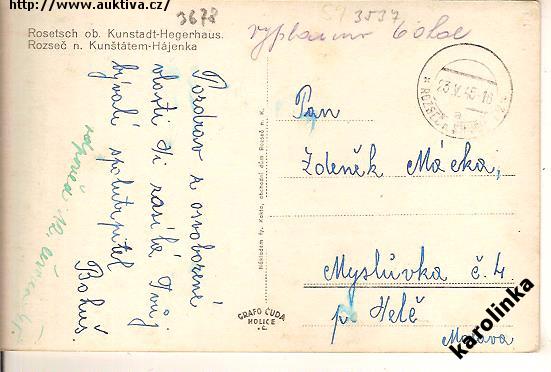 http://www.auktiva.cz/
3678
3537
Rosetsch ob. Kunstadt-Hegerhaus.
Rozseč n. Kunštátem-Hájenka
Pozdrav z osvobozené
vlasti Ti zasílá Tvůj
bývalí spolutrpitel
Bohuš.
Nákladem fy. Fakto, obchodní dům Rozseč n. K.
GRAFO ČUDA
HOLICE
Č.
23.V.45-16
a
Pan
Zdeněk Mácka,
Myslůvka č. 4
p. Helč
Morava
karolinka